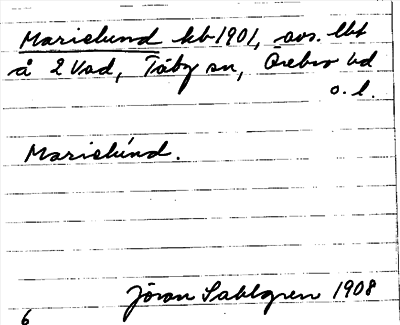 Marielund kb 1901, avs. lht
å 2 Vad, Täby sn, Örebro hd
o. l.
Marielúnd.
Jöran Sahlgren 1908
6